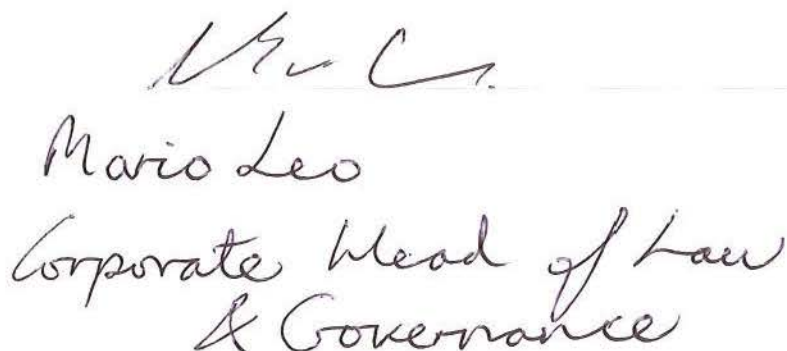 Mario Leo
Corporate Head of Law
& Governance